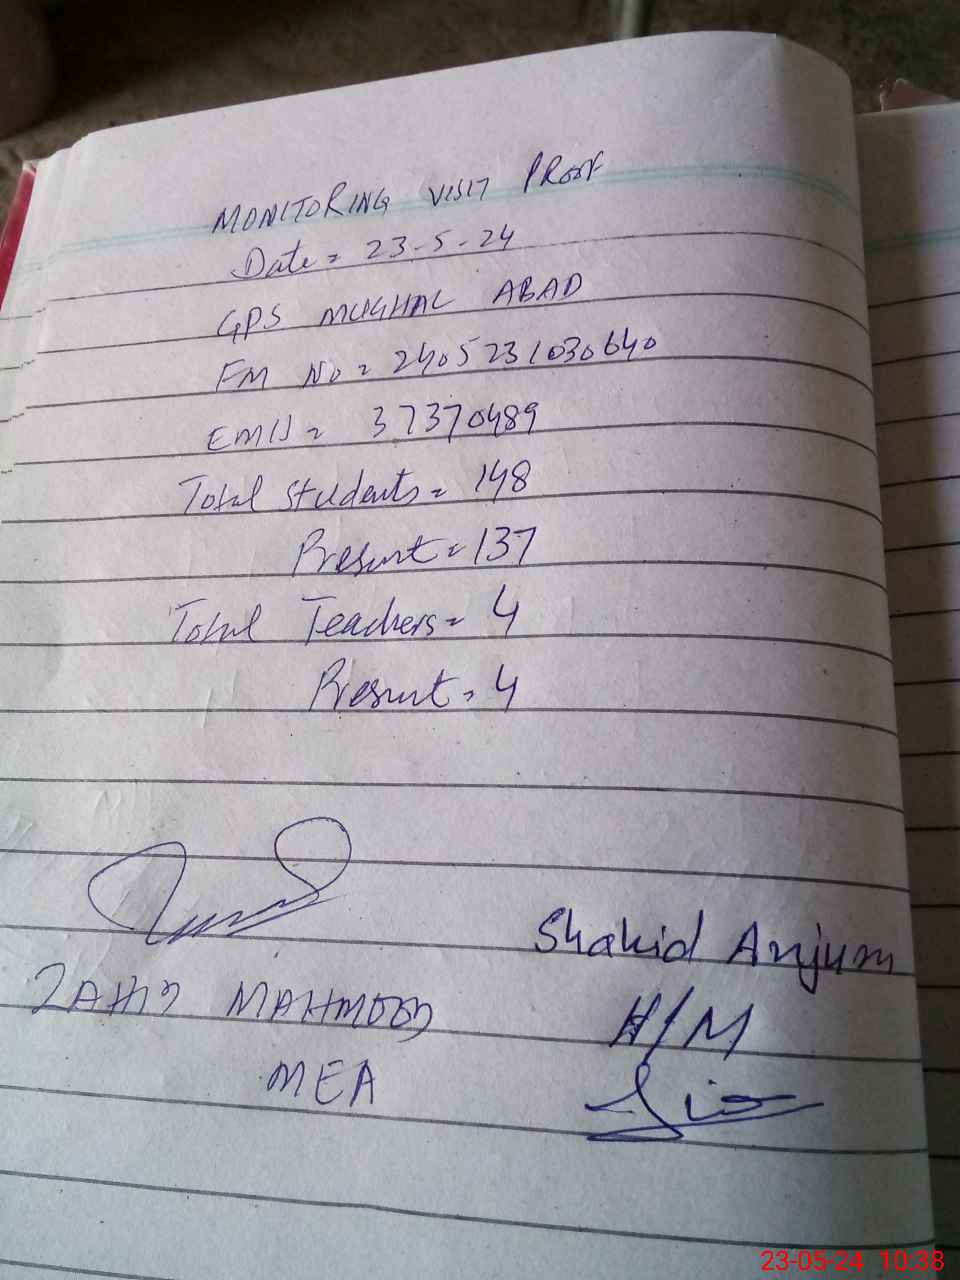 MONITORING VISIT PROOF
Date = 23-5-24
GPS MUGHAL ABAD
FM No = 2405231030640
EMIS = 37370489
Total Students = 148
Present = 137
Total Teachers = 4
Present = 4
Shahid Anjum
ZAHID MAHMOOD
H/M
MEA
23-05-24 10:38